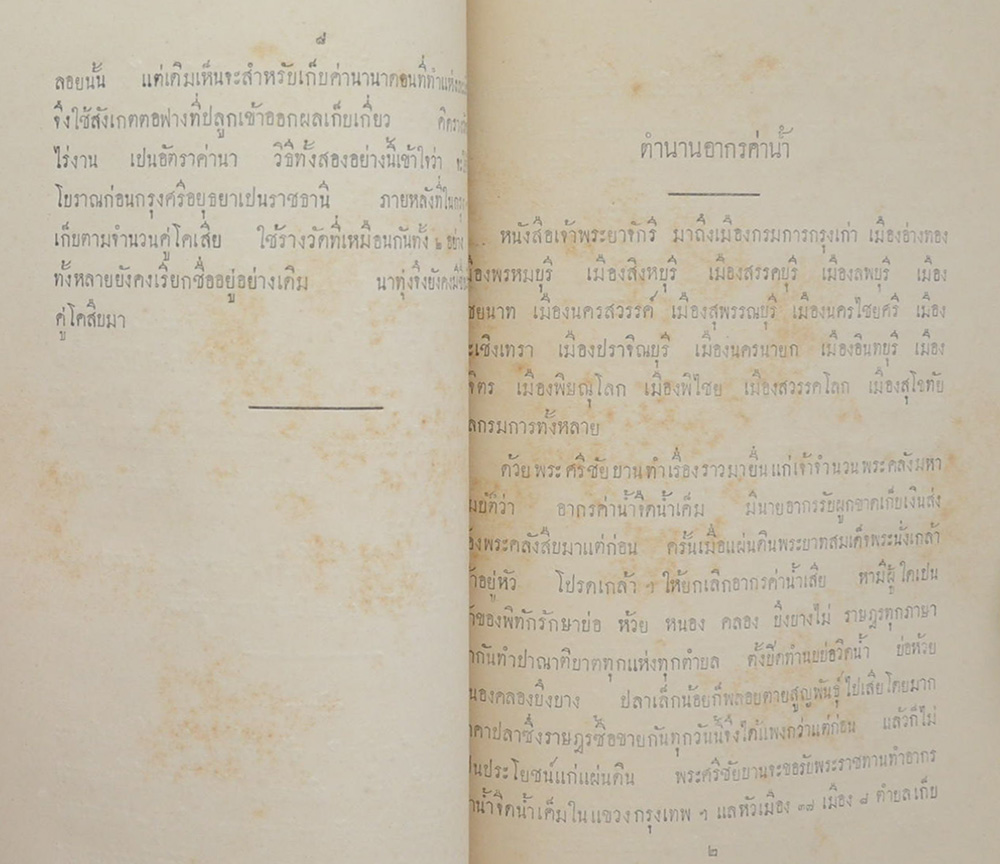 ๘
ลอยนั้น แต่เดิมเห็นจะสำหรับเก็บค่านานาดอนที่ทำ
จึงใช้สังเกตตอฟางที่ปลูกเข้าออกผลเก็บเกี่ยว
ไร่งาน เปนอัตราค่านา วิธีทั้งสองอย่างนี้เข้าใจว่า
โบราณก่อนกรุงศรีอยุธยาเปนราชธานี ภายหลังที่ใน
เก็บตามจำนวนคู่โคเสีย ใช้รางวัดที่เหมือนกันทั้ง ๒ อย่าง
ทั้งหลายยังคงเรียกชื่ออยู่อย่างเดิม นาทุ่งจึงยังคง
คู่โคสืบมา
ตำนานอากรค่าน้ำ
... หนังสือเจ้าพระยาจักรี มาถึงเมืองกรมการกรุงเก่า เมืองอ่างทอง
เมืองพรหมบุรี เมืองสิงหบุรี เมืองสรรคบุรี เมืองลพบุรี เมือง
ชยนาท เมืองนครสวรรค์ เมืองสุพรรณบุรี เมืองนครไชยศรี เมือง
ะเชิงเทรา เมืองปราจิณบุรี เมืองนครนายก เมืองอินทบุรี เมือง
จิตร เมืองพิษณุโลก เมืองพิไชย เมืองสวรรคโลก เมืองสุโขทัย
ลกรมการทั้งหลาย
ด้วยพระศรีชัยบานทำเรื่องราวมายื่นแก่เจ้าจำนวนพระคลังมหา
มบัติว่า อากรค่าน้ำจืดน้ำเค็ม มีนายอากรรับผูกขาดเก็บเงินส่ง
้องพระคลังสืบมาแต่ก่อน ครั้นเมื่อแผ่นดินพระบาทสมเด็จพระนั่งเกล้า
จ้าอยู่หัว โปรดเกล้า ฯ ให้ยกเลิกอากรค่าน้ำเสีย หามีผู้ใดเปน
จ้าของพิทักรักษาบ่อ ห้วย หนอง คลอง บึงบางไม่ ราษฎรทุกภาษา
ากันทำปาณาติบาตทุกแห่งทุกตำบล ตั้งปิดทำนบบ่อวิดน้ำ บ่อห้วย
นองคลองบึงบาง ปลาเล็กน้อยก็พลอยตายสูญพันธุ์ไปเสียโดยมาก
าคาปลาซึ่งราษฎรซื้อขายกันทุกวันนี้จึงได้แพงกว่าแต่ก่อน แล้วก็ไม่
ป็นประโยชน์แก่แผ่นดิน พระศรีชัยบานจะขอรับพระราชทานทำอากร
่าน้ำจืดน้ำเค็มในแขวงกรุงเทพ ฯ แลหัวเมือง ๓๗ เมือง ๘ ตำบลเก็บ
๒